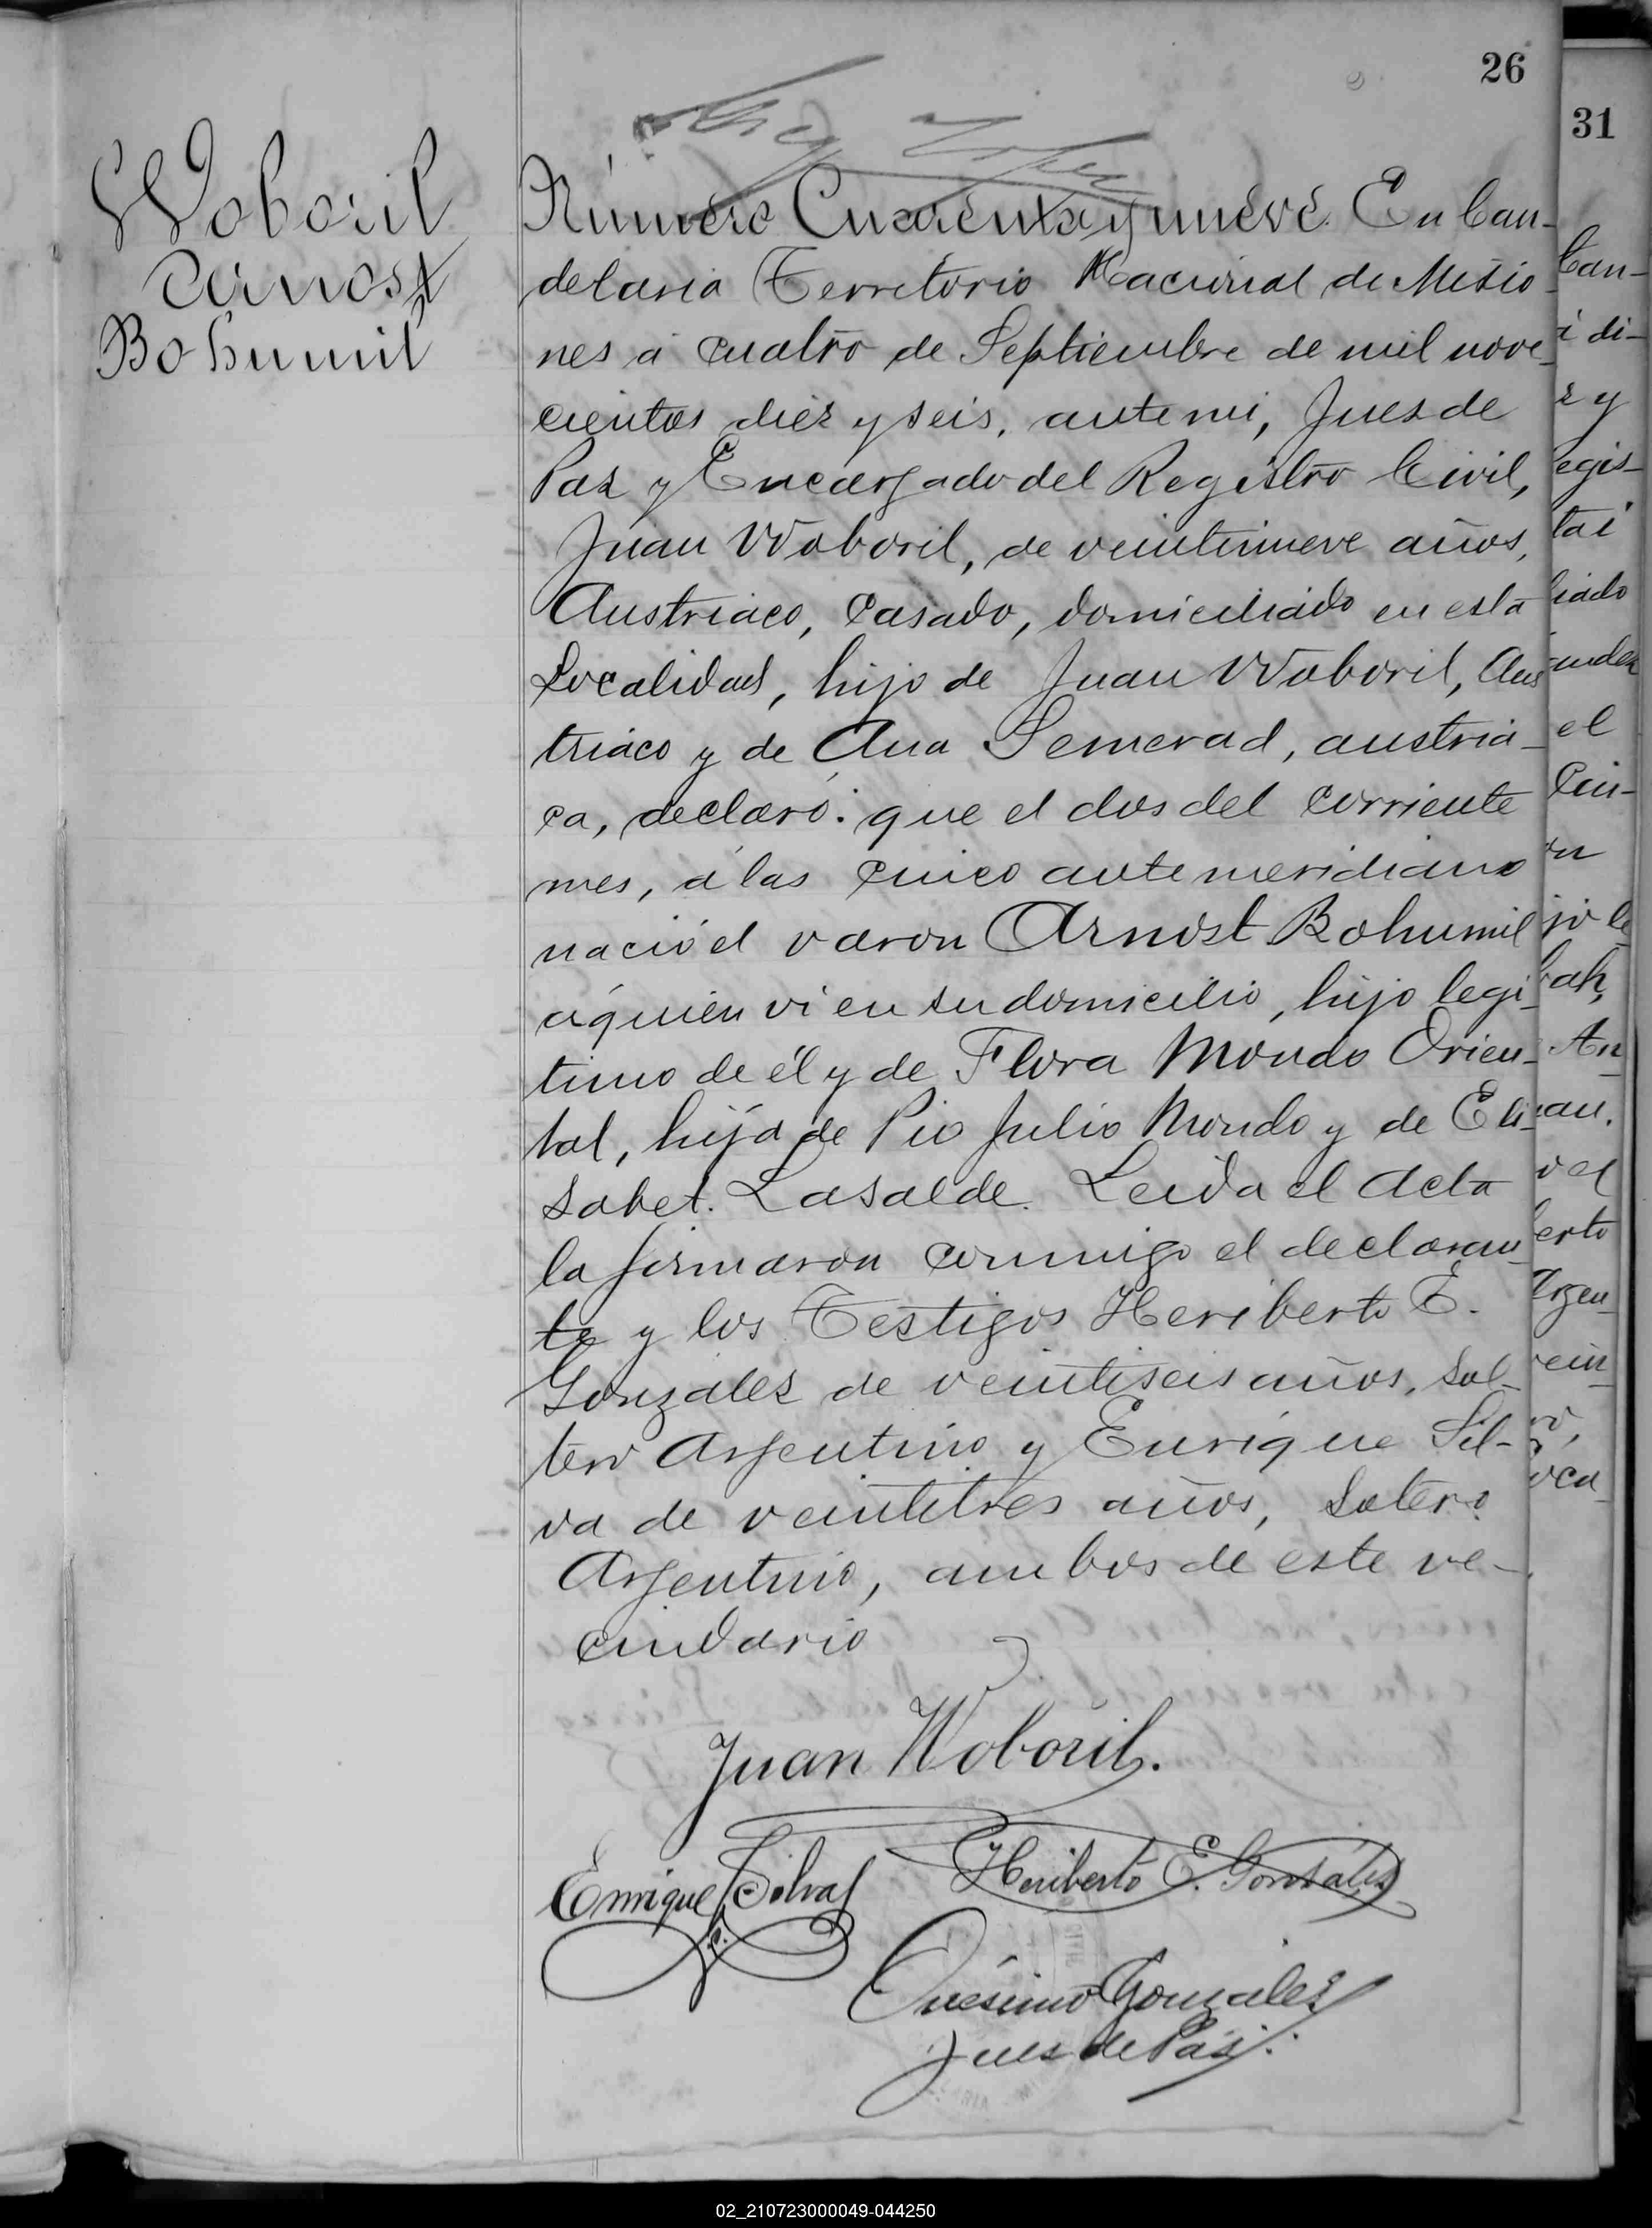 26
31
Woboril
Arnost
Bohumil
Número Cuarenta y nueve. En Can-
delaria Territorio Nacional de Misio-
nes á cuatro de Septiembre de mil nove-
cientos diez y seis, ante mi, Juez de
Paz y Encargado del Registro Civil,
Juan Woboril, de veintinueve años,
Austriaco, casado, domiciliado en esta
Localidad, hijo de Juan Woboril, Aus
triaco y de Ana Semerad, austria-
ca, declaró: que el dos del corriente
mes, á las cinco ante meridiano
nació el varon Arnost Bohumil
á quien vi en su domicilio, hijo legi-
timo de él y de Flora Mondo Orien-
tal, hija de Pio Julio Mondo y de Eli-
sabet. Lasalde. Leida el Acta
la firmaron conmigo el declaran-
te y los Testigos Heriberto E.
Gonzalez de veintiseis años, sol-
tero Argentino y Enrique Sil-
va de veintitres años, soltero
Argentino, ambos de este ve-
cindario
Juan Woboril.
Enrique Silva
Heriberto E. Gonzales
Onésimo Gonzalez
Juez de Paz.
02_210723000049-044250